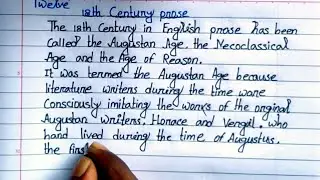 Twelve
18th Century prose
The 18th Century in English prose has been
Called the Augustan Age, the Neoclassical
Age and the Age of Reason.
It was termed the Augustan Age because
literature writers during the time ware
Consciously imitating the works of the orginal
Augustan writers, Horace and Vergil, who
hand lived during the time of Augustus.
the first